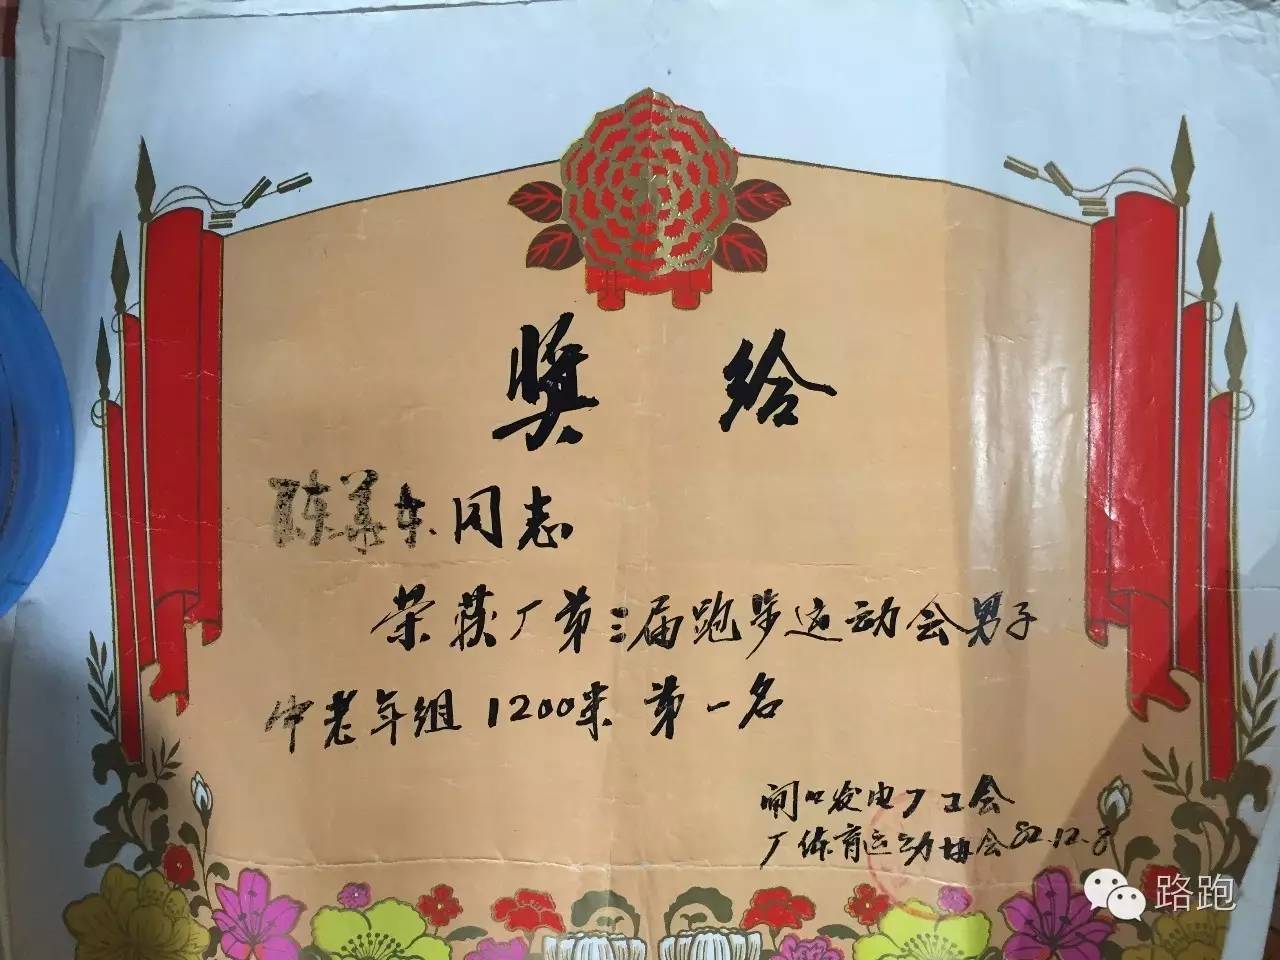 奖给
陈义东同志
荣获厂第三届跑步运动会男子
中老年组1200米第一名
闸口发电厂工会
厂体育运动协会82.12.8
路跑